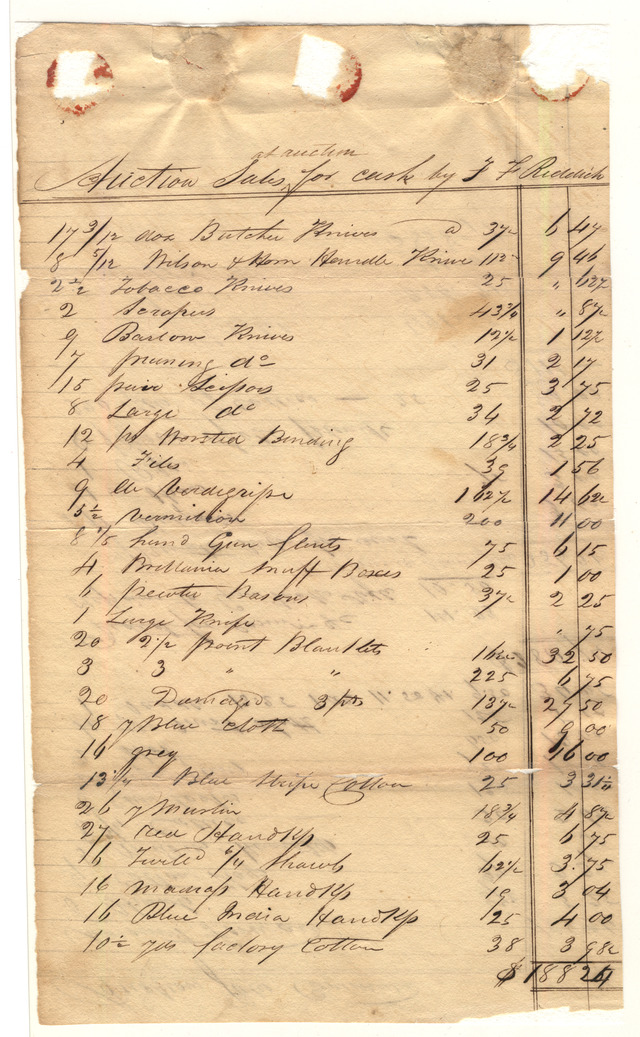 at auction
Auction Sales for cash by F F Riddick
17 3/12 doz Butcher Knives @ 37½ 6 47
8 5/12 Wilson & Horn Handle Knives 112½ 9 46
2½ Tobacco Knives 25 " 62½
2 Scrapers 43¾ " 87½
9 Barlow Knives 12½ 1 12½
7 pruning do 31 2 17
15 pair Scissors 25 3 75
8 Large do 34 2 72
12 ps Worsted Binding 18¾ 2 25
4 Files 39 1 56
9 lb Verdigripe 1 62½ 14 62½
5½ Vermilion 200 11 00
8 1/5 hund Gun flints 75 6 15
4 Brittania snuff Boxes 25 1 00
6 pewter Basons 37½ 2 25
1 Large Knife " 75
20 2½ point Blankets 162½ 32 50
3 3 " " 225 6 75
20 Damaged 3 pts 137½ 27 50
18 y Blue cloth 50 9 00
16 grey 100 16 00
13¼ Blue Stripe Cotton 25 3 31½
26 y Muslin 18¾ 4 87½
27 red Handkfs 25 6 75
6/4 Shawls 62½ 3.75
16 madrass Handkfs 19 3 04
16 Blue India Handkfs 25 4 00
10½ yds factory Cotton 38 3 98½
$ 188